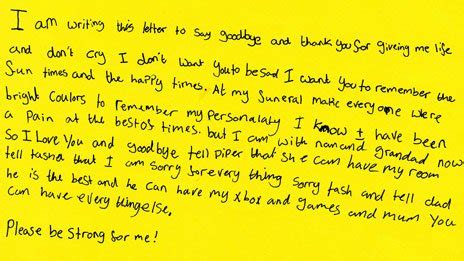 I am writing this letter to say goodbye and thank you for giveing me life
and don't cry I don't want you to be sad I want you to remember the
Sun times and the happy times. At my funeral make everyone were
bright Coulors to remember my Personalaty I know I have been
a Pain at the besto's times. but I am with nan and grandad now
So I Love You and goodbye tell Piper that she can have my room
tell tasha that I am Sorry for every thing Sorry tash and tell dad
he is the best and he can have my xbox and games and mum you
can have every thing else.
Please be strong for me!